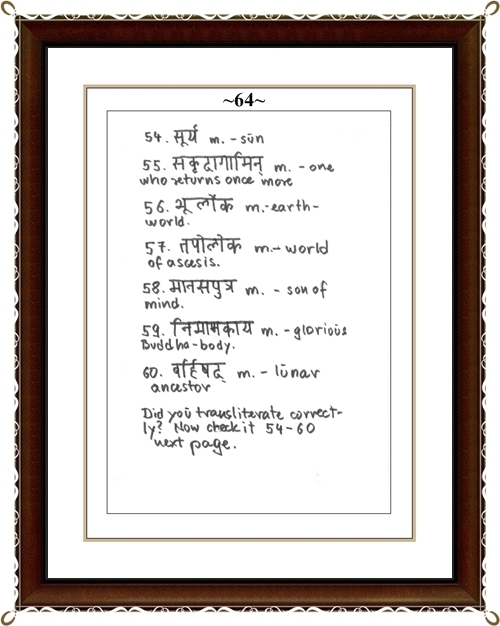 ~64~
54. सूर्य m. - sūn
55. सकृदागामिन् m. - one
who returns once more
56. भूर्लोक m.-earth-
world.
57. तपोलोक m.- world
of ascesis.
58. मानसपुत्र m. - son of
mind.
59. निमामकाय m. - glorioūs
Buddha-body.
60. वर्हिषद् m. - lūnar
ancestor
Did yoū transliterate correct-
ly? Now check it 54-60
next page.